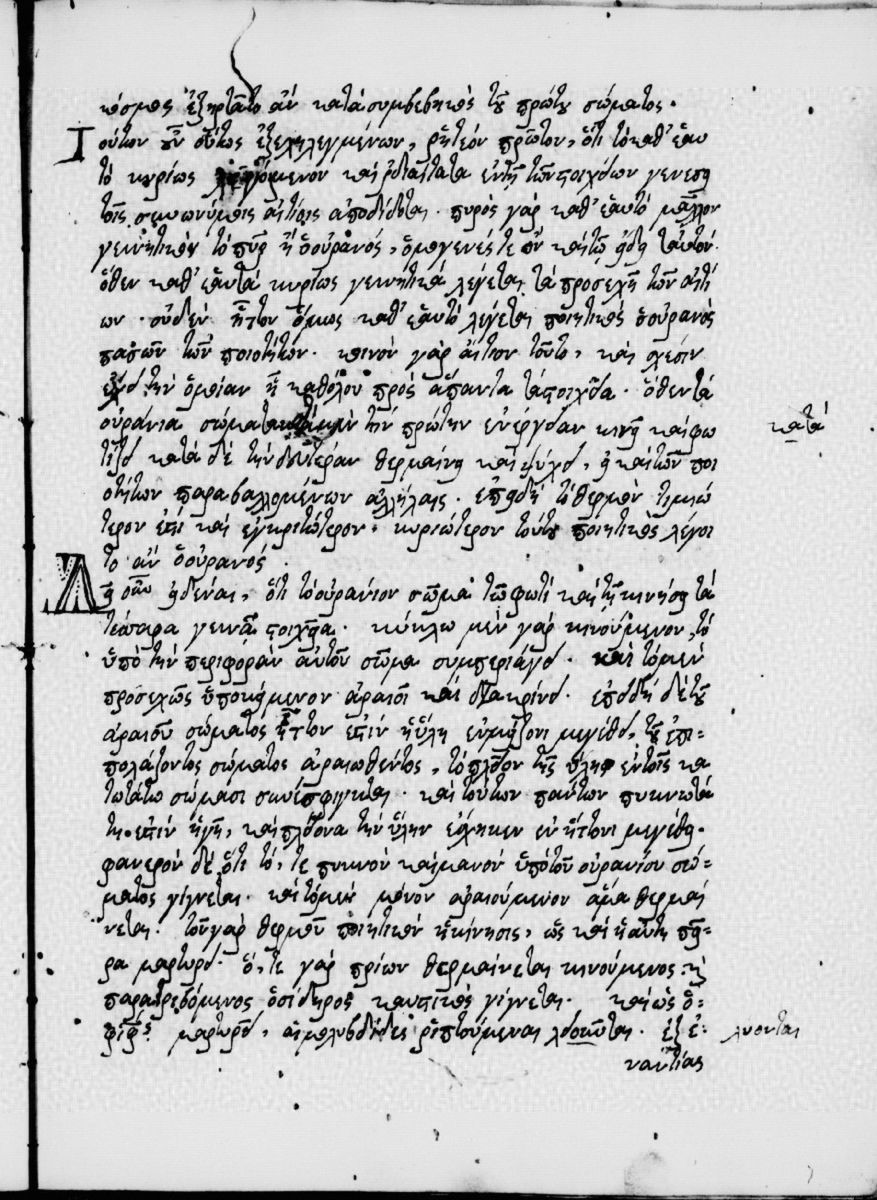 κόσμος ἐξηρτᾶτο ἂν κατὰ συμβεβηκὸς τοῦ πρώτου σώματος.
Τούτων οὖν οὕτως ἐξεληλεγμένων, ῥητέον πρῶτον, ὅτι τὸ καθ' ἑαυ
τὸ κυρίως καὶ ἐν τῇ τῶν στοιχείων γενέσει
τοῖς συνωνύμοις αἰτίοις ἀποδίδοται. πυρὸς γὰρ καθ' ἑαυτὸ μᾶλλον
γεννητικὸν τὸ πῦρ ἢ ὁ οὐρανός, ὁμογενές τε ὂν καὶ τῷ εἴδει ταὐτόν.
ὅθεν καθ' ἑαυτὰ κυρίως γεννητικὰ λέγεται τὰ προσεχῆ τῶν αἰτί
ων. οὐδὲν ἧττον ὅμως καθ' ἑαυτὸ λέγεται ποιητικὸς ὁ οὐρανὸς
πασῶν τῶν ποιοτήτων. κοινὸν γὰρ αἴτιον τοῦτο, καὶ σχέσιν
ἔχει τὴν ὁμοίαν ἢ καθόλου πρὸς ἅπαντα τὰ στοιχεῖα. ὅθεν τὰ
οὐράνια σώματα κατὰ μὲν τὴν πρώτην ἐνέργειαν κινεῖ καὶ φω
κατὰ
τίζει κατὰ δὲ τὴν δευτέραν θερμαίνει καὶ ψύχει, εἰ καὶ τῶν ποι
οτήτων παραβαλλομένων ἀλλήλαις. ἐπειδὴ τὸ θερμὸν τιμιώ
τερον ἐστὶ καὶ ἐγκριτώτερον, κυριώτερον τούτου ποιητικὸς λέγοι
το ἂν ὁ οὐρανός.
Δεῖ οὖν εἰδέναι, ὅτι τὸ οὐράνιον σῶμα τῷ φωτὶ καὶ τῇ κινήσει τὰ
τέσσαρα γεννᾷ στοιχεῖα. κύκλῳ μὲν γὰρ κινούμενον, τὸ
ὑπὸ τὴν περιφορὰν αὐτοῦ σῶμα συμπεριάγει. καὶ τὸ μὲν
προσεχῶς ὑποκείμενον ἀραιοῖ καὶ διακρίνει. ἐπειδὴ δὲ τοῦ
ἀραιοῦ σώματος ἧττον ἐστὶν ἡ ὕλη ἐν μείζονι μεγέθει, τοῦ ἐπι-
πολάζοντος σώματος ἀραιωθέντος, τὸ πλεῖον τῆς ὕλης ἐν τοῖς κα
τωτάτω σώμασι συνέσφιγκται. καὶ τούτων πάντων πυκνωτά
τη ἐστὶν ἡ γῆ, καὶ πλείονα τὴν ὕλην εἴληχεν ἐν ἥττονι μεγέθει.
φανερὸν δὲ ὅτι τό, τε πυκνὸν καὶ μανὸν ὑπὸ τοῦ οὐρανίου σώ-
ματος γίγνεται. καὶ τὸ μὲν μόνον ἀραιούμενον ἅμα θερμαί
νεται. τοῦ γὰρ θερμοῦ ποιητικὸν ἡ κίνησις, ὡς καὶ ἡ αὐτὴ πεῖ-
ρα μαρτυρεῖ. ὅ, τε γὰρ πρίων θερμαίνεται κινούμενος, καὶ
παρατριβόμενος ὁ σίδηρος καυστικὸς γίγνεται. καὶ ὡς ὁ
μαρτυρεῖ, αἱ μολυβδίδες ῥιπτούμεναι. ἐξ ἐ-
λύονται
ναντίας